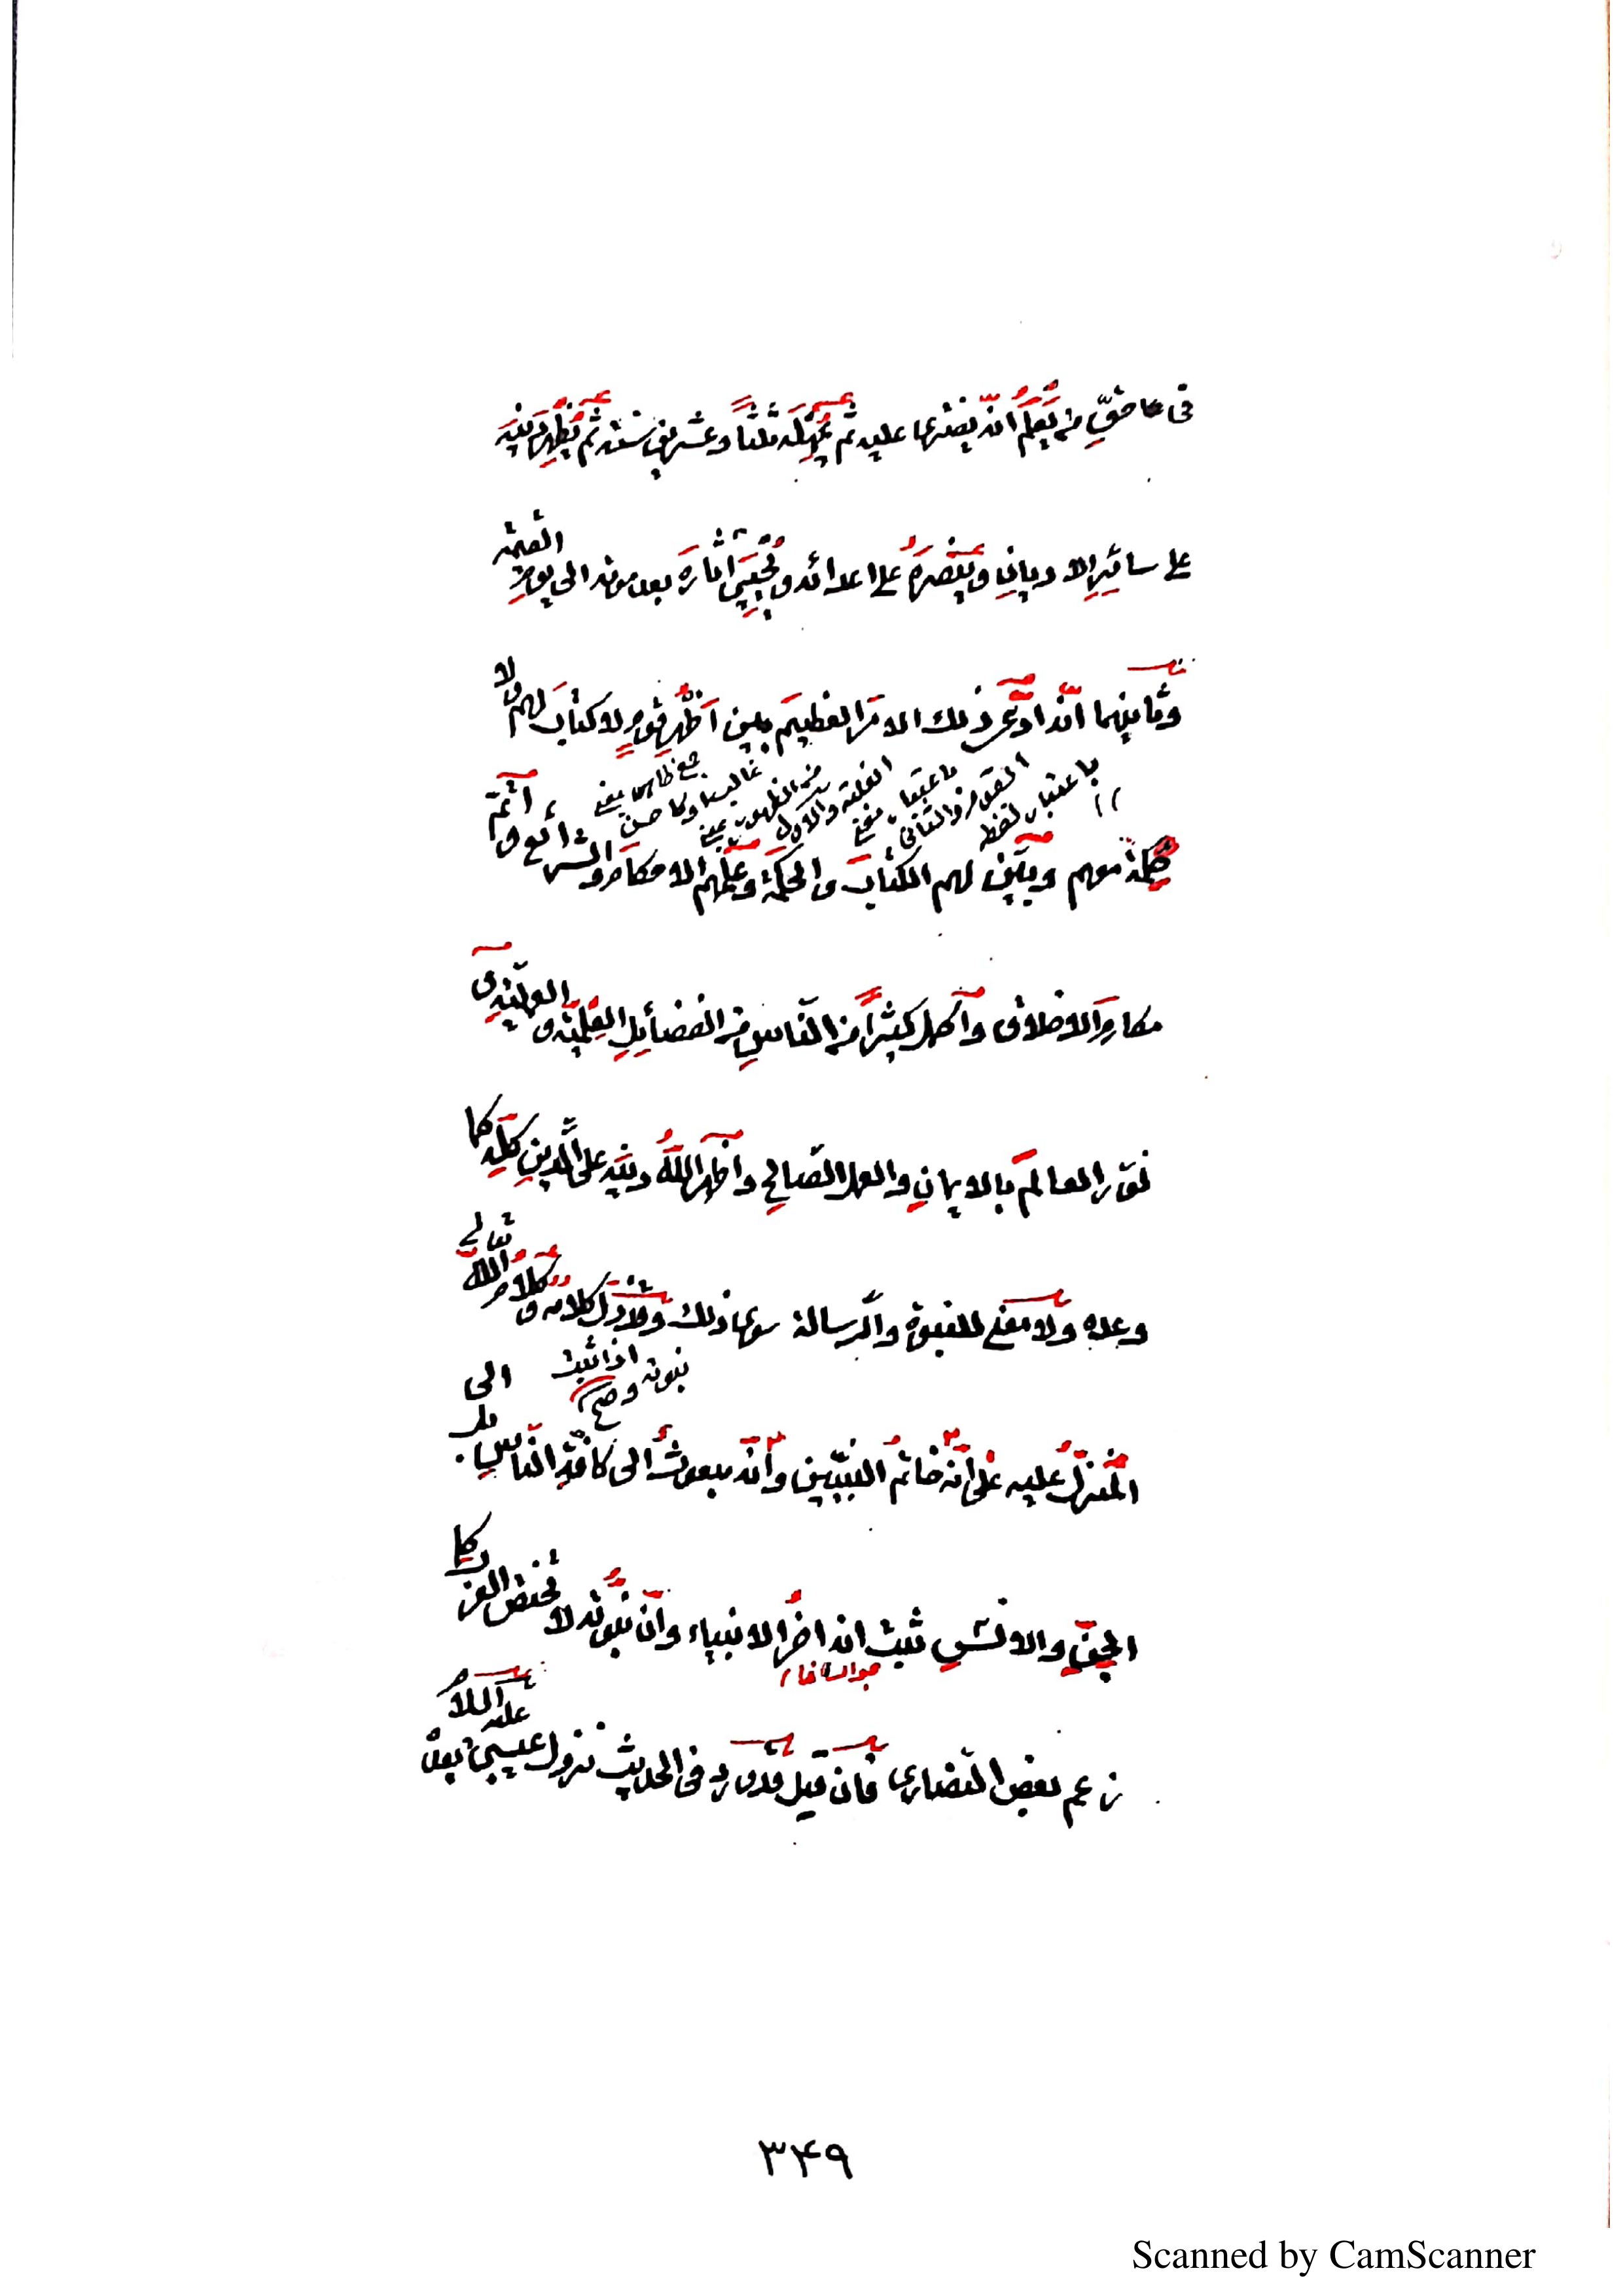 فى حق من يعلم انه يفترى عليه ثم يمهله ثلثا وعشرين سنة ثم يظهر دينه
على سائر الاديان وينصره على اعدائه ويحيى اثاره بعد موته الى يوم القيمة
وثانيهما انه ادعى ذلك الامر العظيم بين اظهر قوم لا كتاب لهم ولا
باعتبار لفظ
القوم والثانى
باعتبار معنى
حكمة معهم وبين لهم الكتاب والحكمة وعلمهم الاحكام والشرائع واتم
مكارم الاخلاق واكمل كثيرا من الناس فى الفضائل العلمية والعملية
نور العالم بالايمان والعمل الصالح واظهر الله دينه على الدين كله كما
وعده ولا معنى للنبوة والرسالة سوى ذلك وقد دل كلامه وكلام الله تعالى
اذا ثبت
نبوته وصح
المنزل عليه على انه خاتم النبيين وانه مبعوث الى كافة الناس بل الى
الجن والانس ثبت انه اخر الانبياء وان نبوته لا تختص العرب كما
جواب اذا
زعم بعض النصارى فان قيل قد ورد فى الحديث نزول عيسى عليه السلام بعده
۳۴۹
Scanned by CamScanner